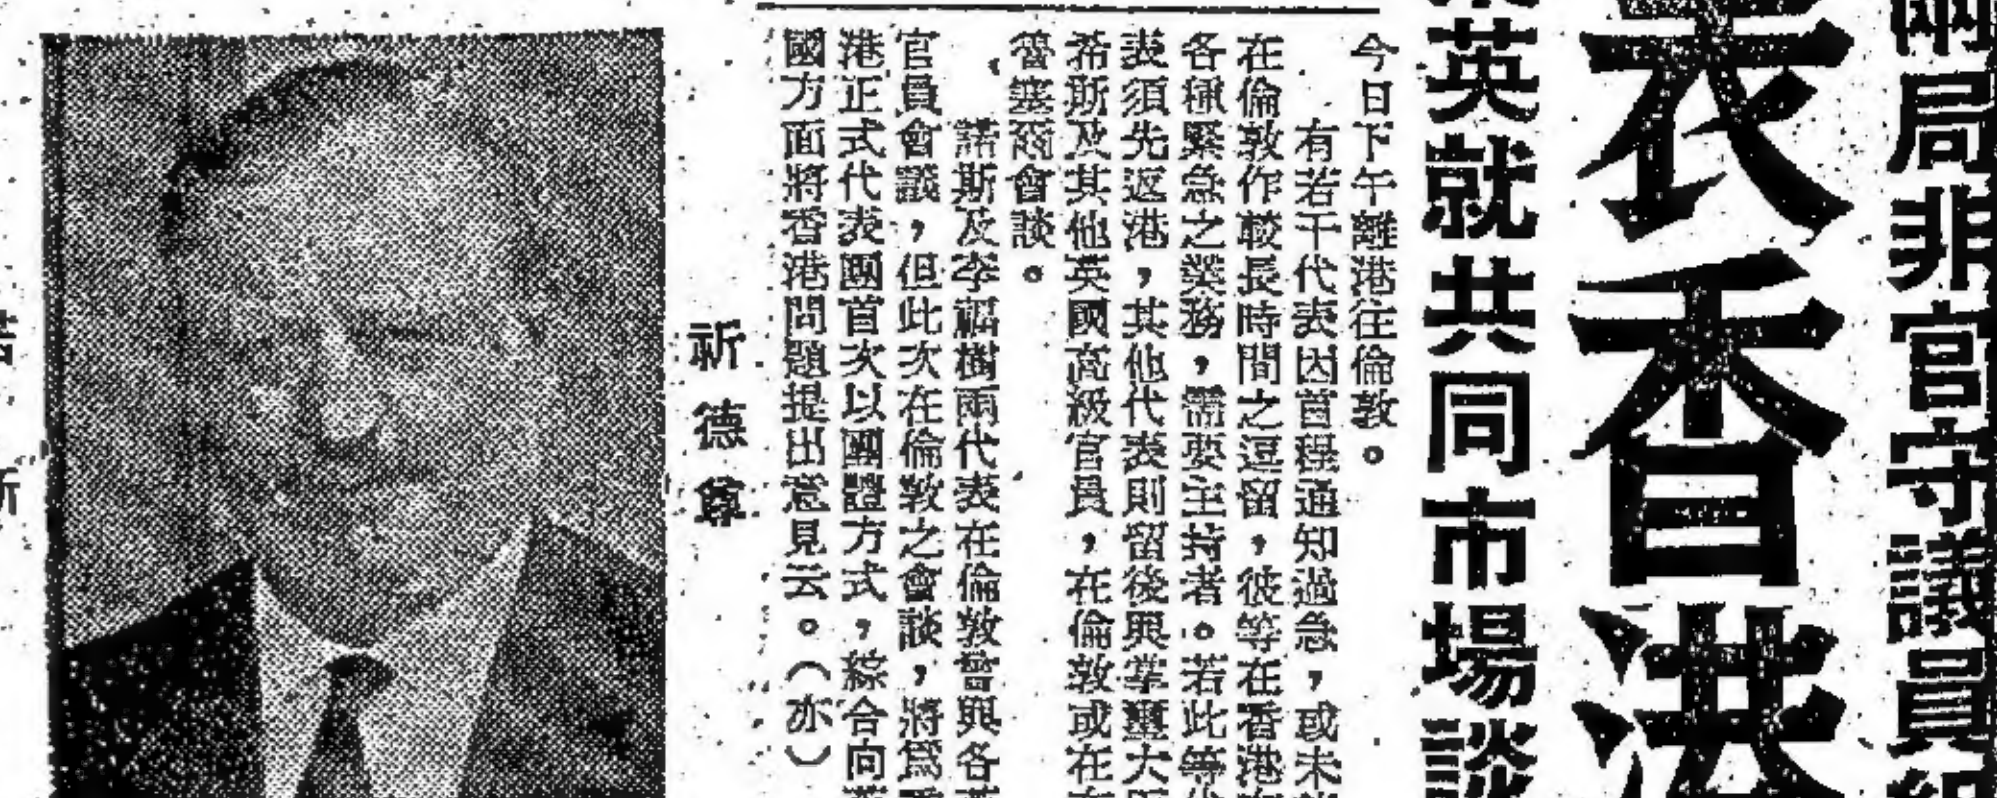 兩局非官守議員組
表香港
英就共同市場談
今日下午離港往倫敦。
有若干代表因首程通知過急，或未
在倫敦作較長時間之逗留，彼等在香港
各種緊急之業務，需要主持者。若此等
表須先返港，其他代表則留後與掌璽大臣
希斯及其他英國高級官員，在倫敦或在
魯塞爾會談。
諾斯及李福樹兩代表在倫敦曾與各
官員會議，但此次在倫敦之會談，將爲
港正式代表團首次以團體方式，綜合向英
國方面將香港問題提出意見云。（亦）
祈德尊
斯